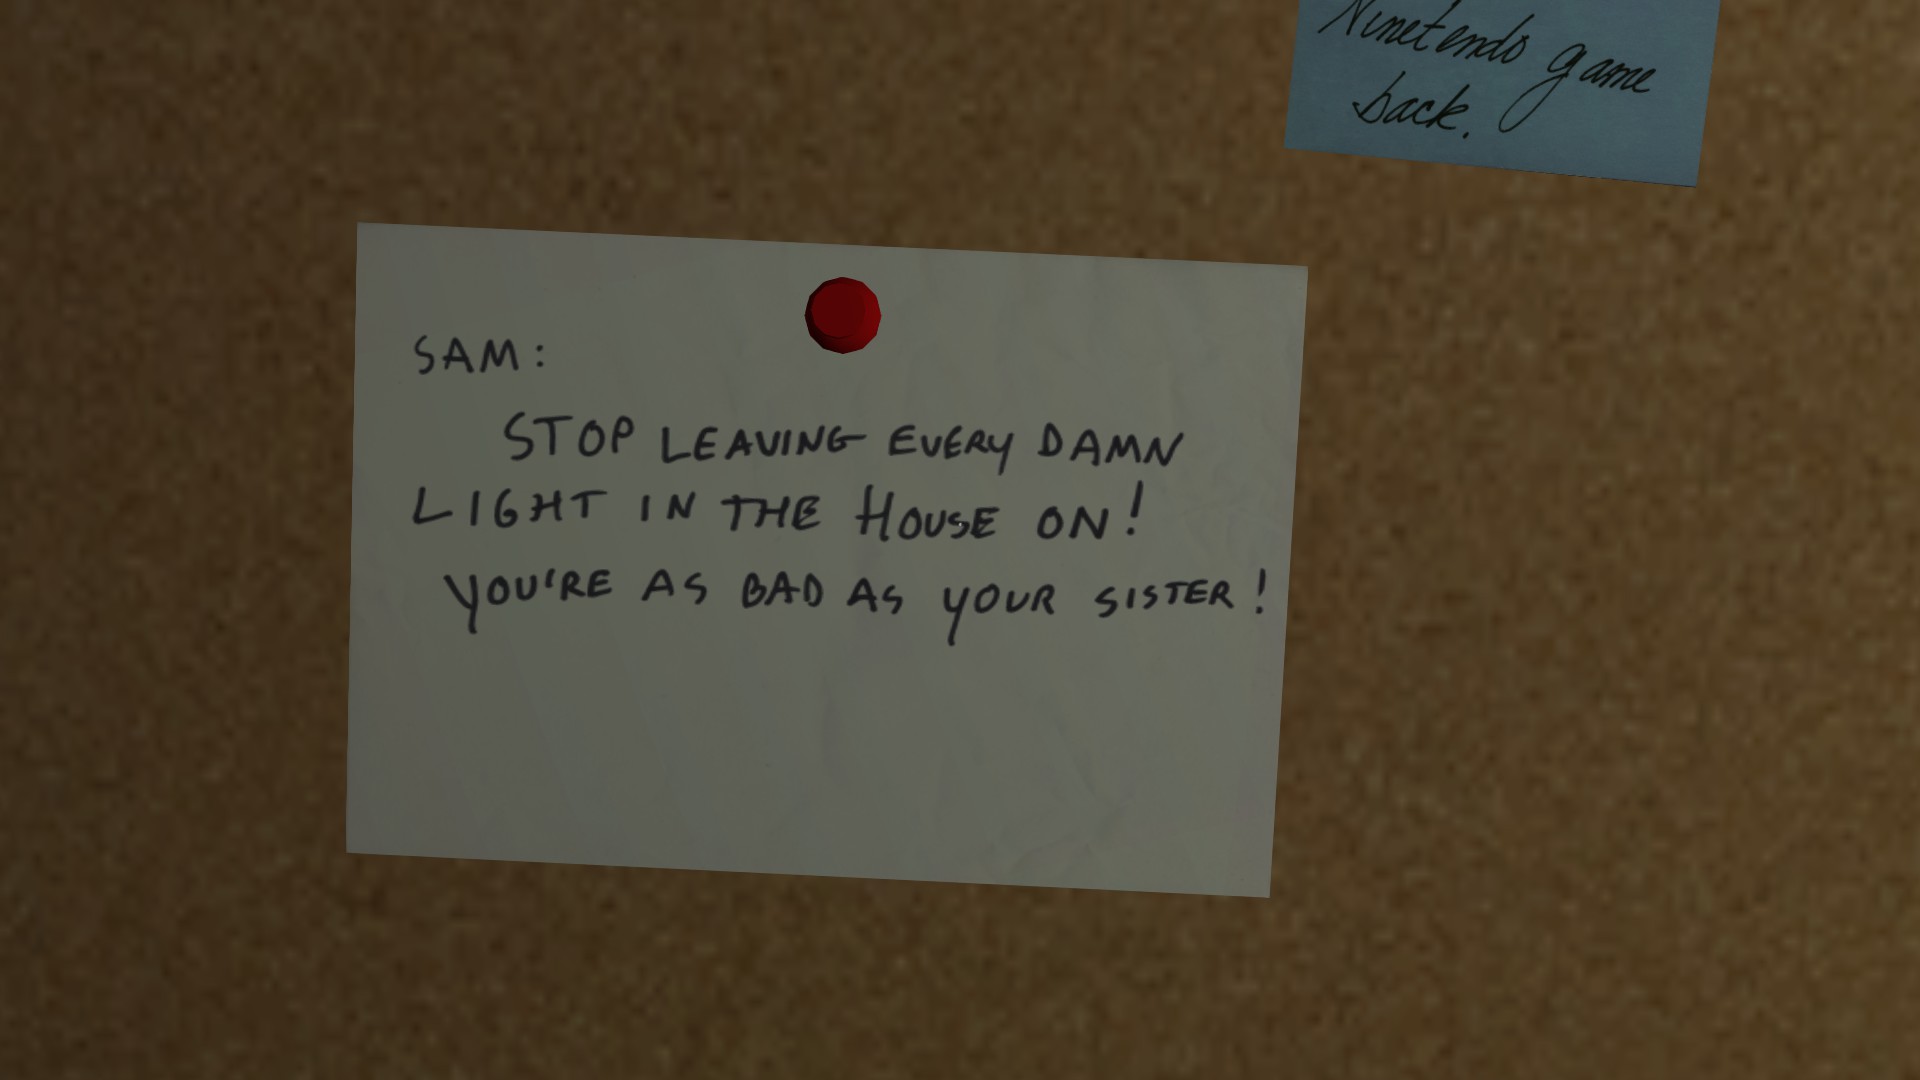 Ninetendo game
back.
SAM:
STOP LEAVING EVERY DAMN
LIGHT IN THE HOUSE ON!
YOU'RE AS BAD AS YOUR SISTER!